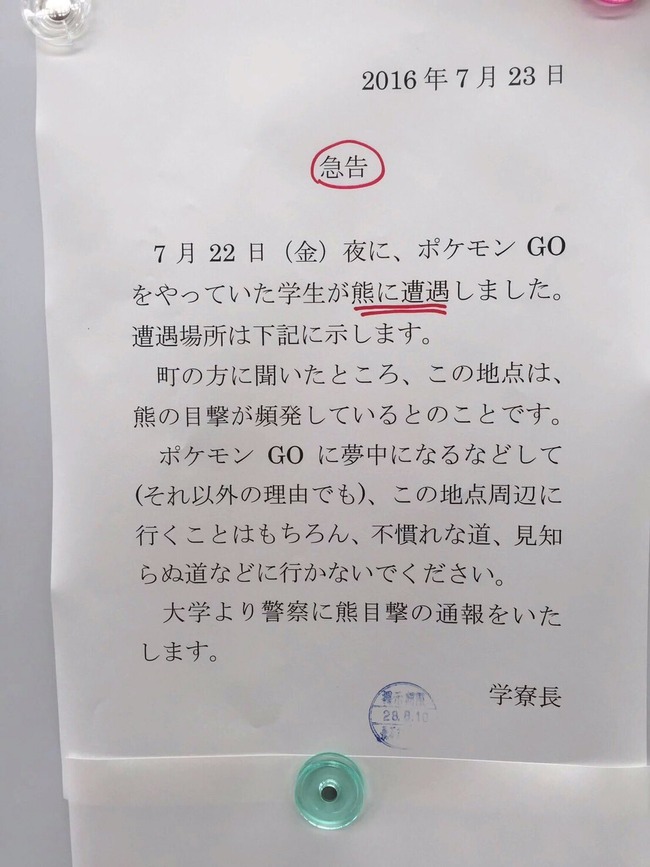 2016年7月23日
急告
7月22日（金）夜に、ポケモンGO
をやっていた学生が熊に遭遇しました。
遭遇場所は下記に示します。
町の方に聞いたところ、この地点は、
熊の目撃が頻発しているとのことです。
ポケモン GO に夢中になるなどして
(それ以外の理由でも)、この地点周辺に
行くことはもちろん、不慣れな道、見知
らぬ道などに行かないでください。
大学より警察に熊目撃の通報をいた
します。
学寮長
掲示期限
28.8.10